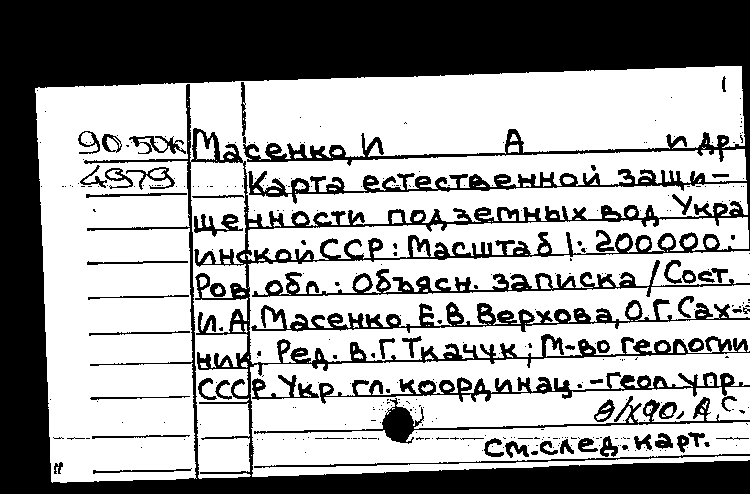 1
90.50к Масенко, И А и др.
4979 Карта естественной защи-
щенности подземных вод Укра
инской ССР : Масштаб 1 : 200000 :
Ров. обл. : Объясн. записка / Сост.
И.А. Масенко, Е.В. Верхова, О.Г. Сах-
ник; Ред. В.Г. Ткачук ; М-во геологии
СССР. Укр. гл. координац. - геол. упр.
А.С.
См. след. карт.